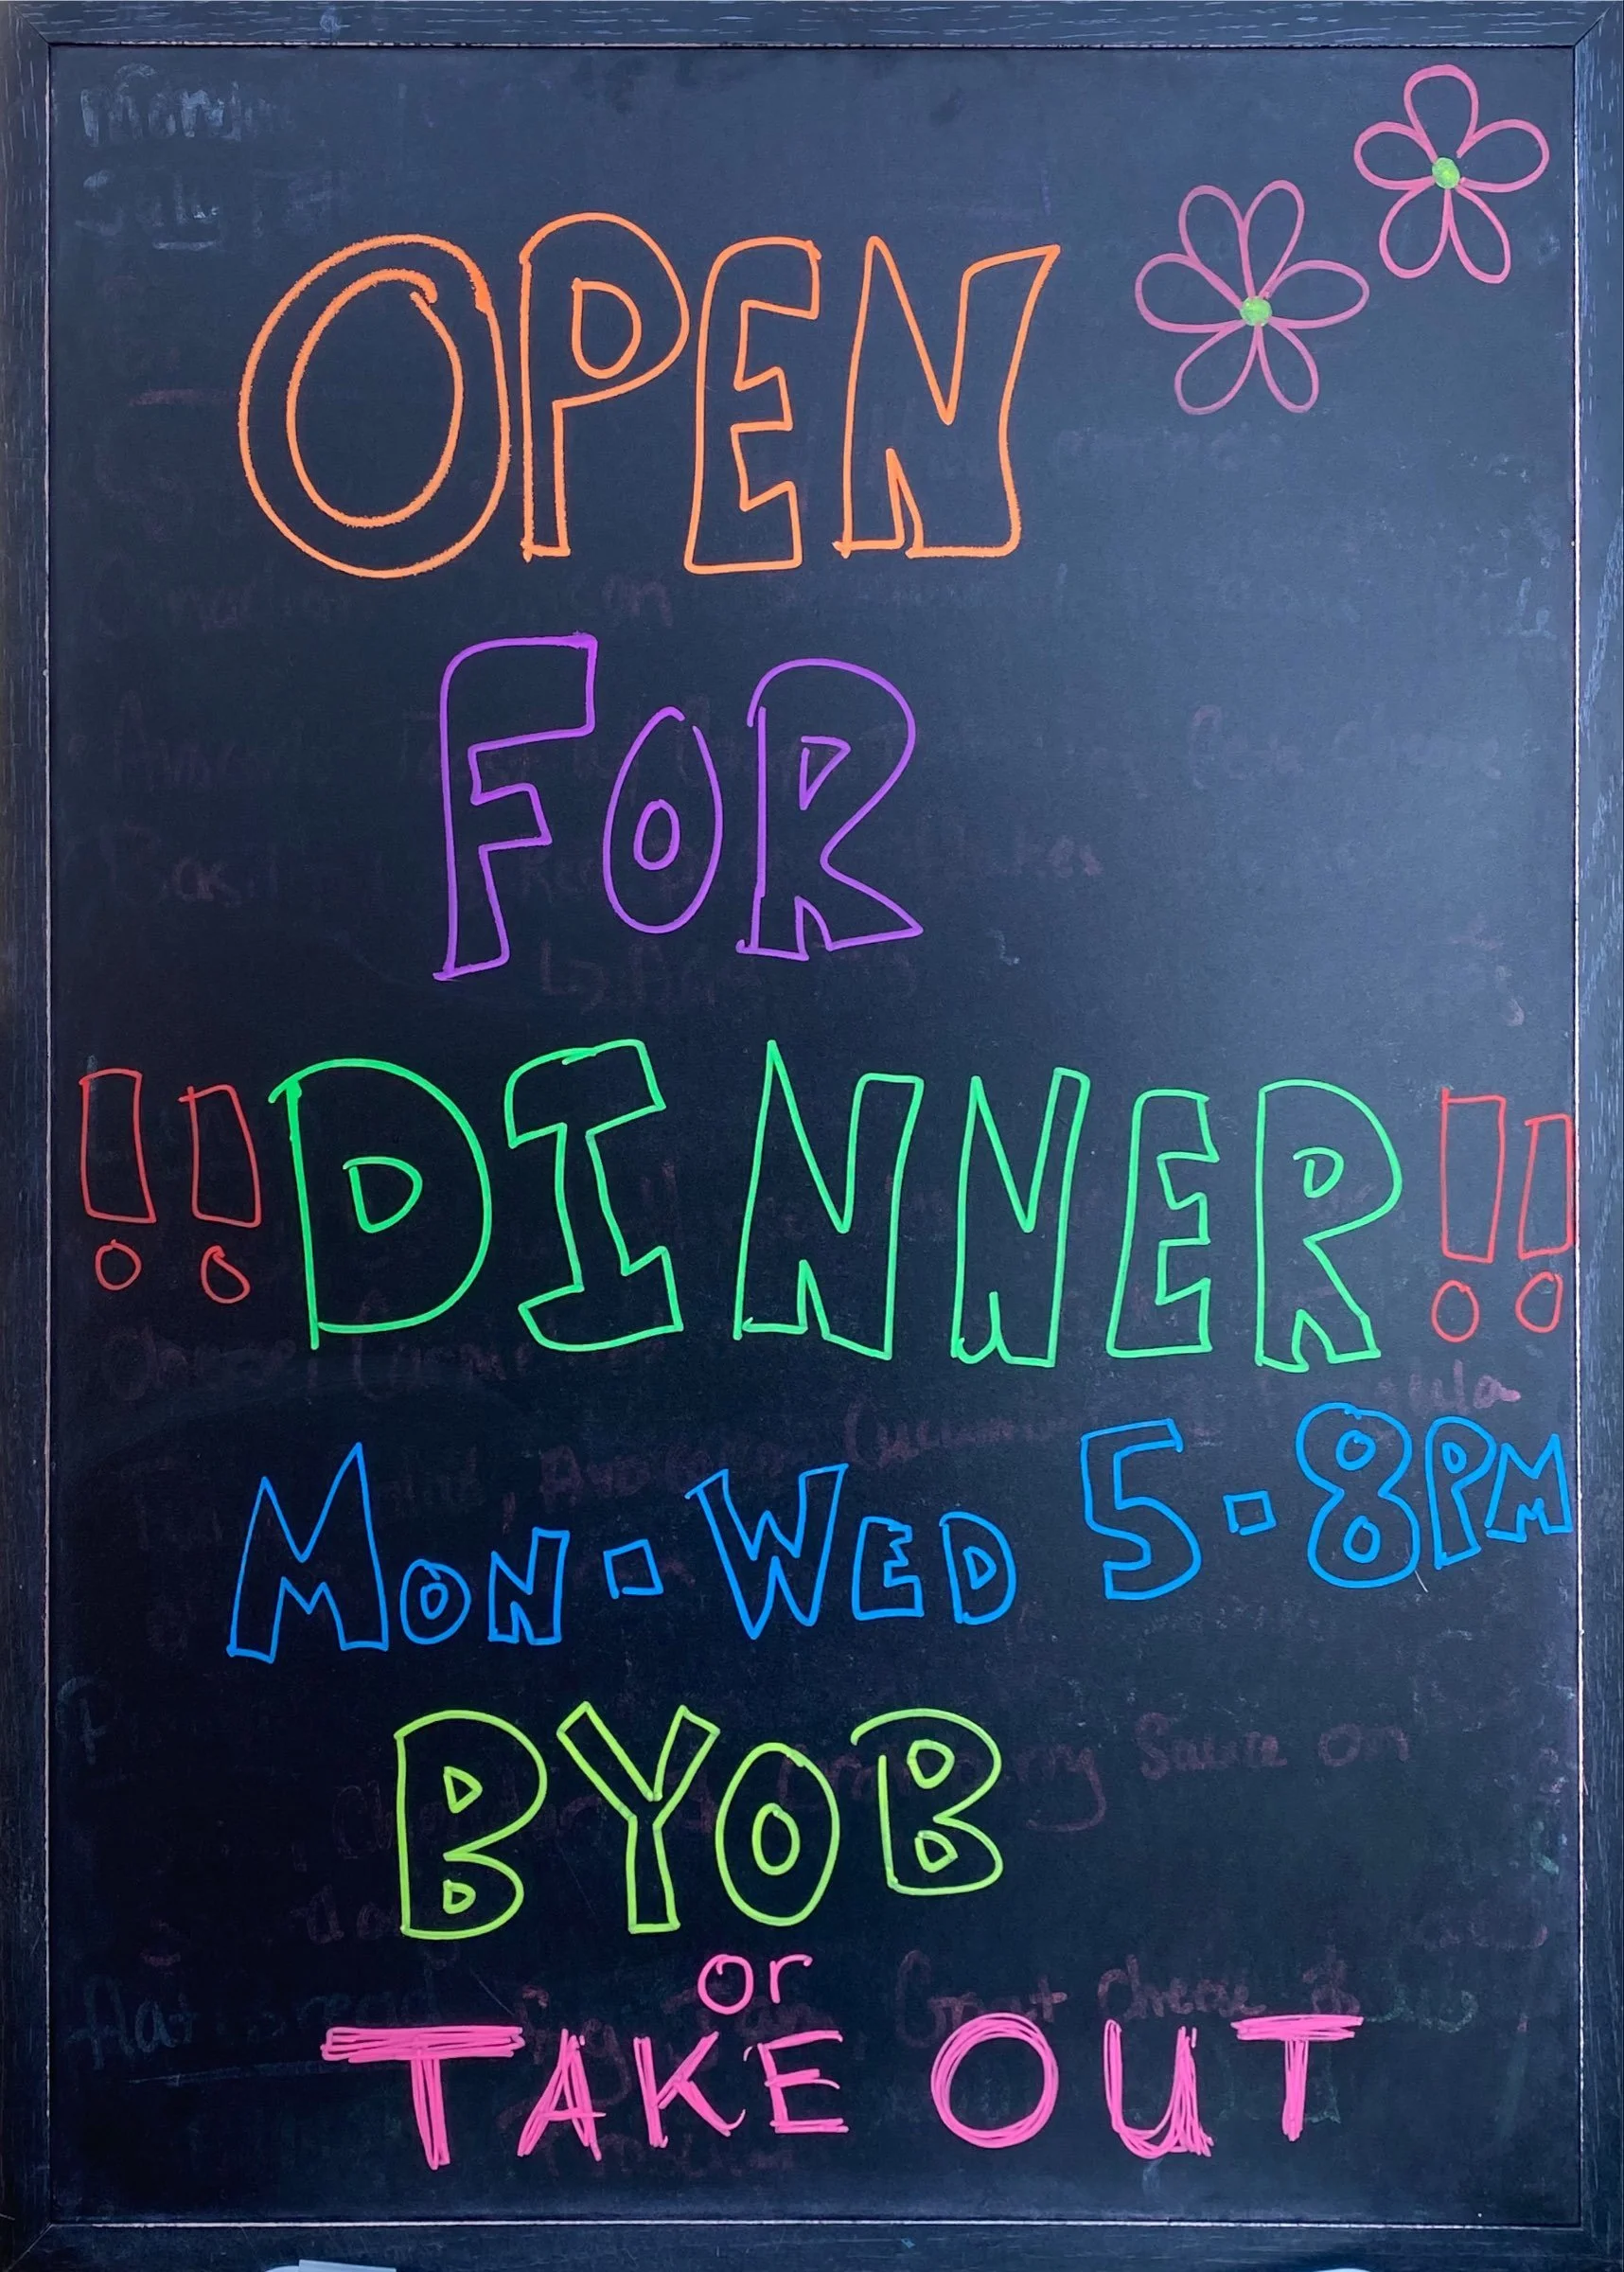 OPEN
FOR
!!DINNER!!
MON-WED 5-8PM
BYOB
or
TAKE OUT